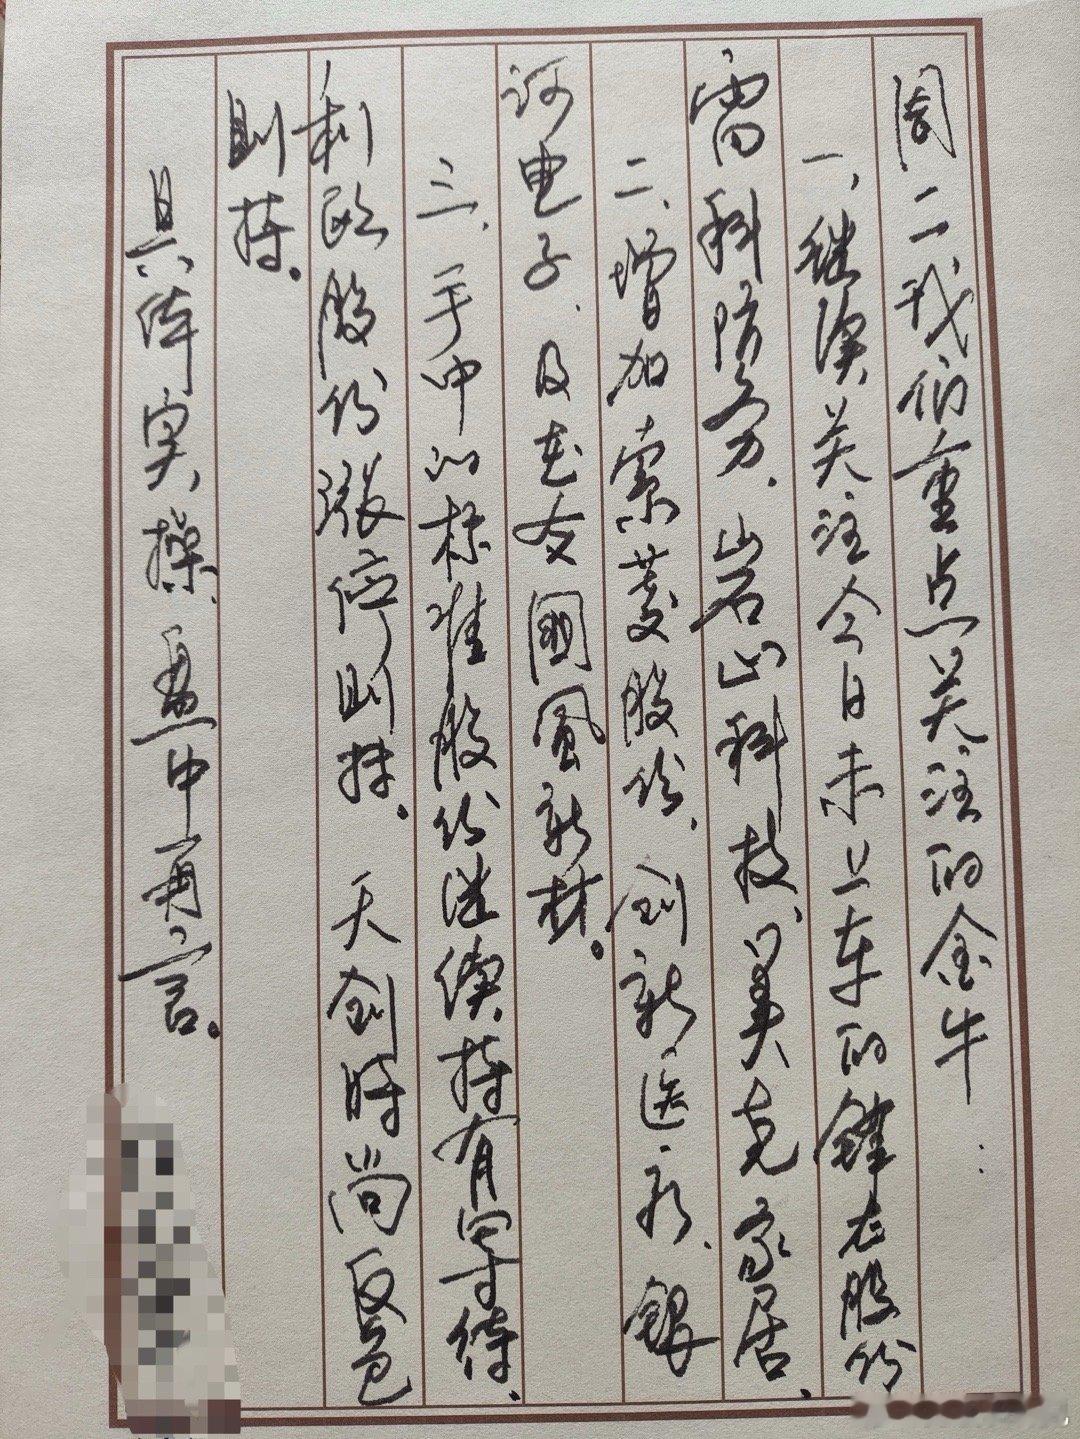 周二我们重点关注的金牛：
一、继续关注今日未上车的锋龙股份
雷科防务、岩山科技、美克家居、
二、增加索菱股份、创新医疗、银
河电子、及志友國風新材。
三、手中的标准股份继续持有等待、
利欧股份涨停则持。天创时尚反包
则持。
具体实操、盘中再言。